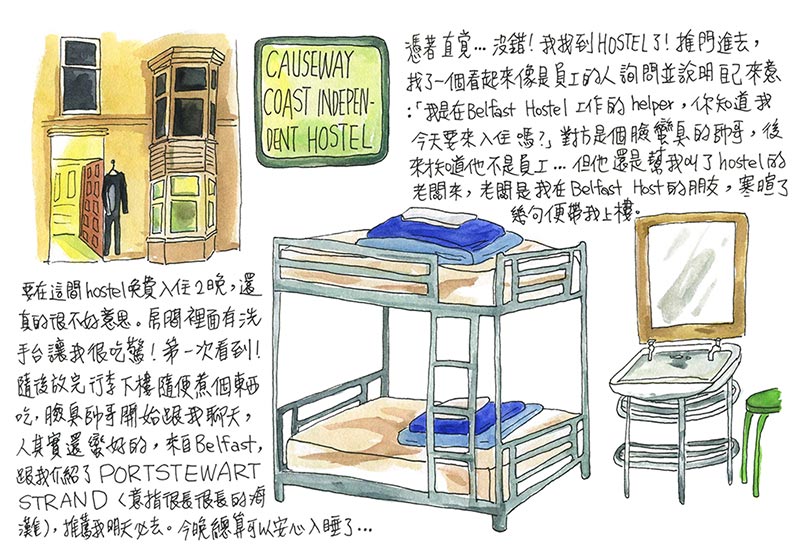 CAUSEWAY
COAST INDEPEN-
DENT HOSTEL
憑著直覺…沒錯!我找到HOSTEL了!推門進去,
找了一個看起來像是員工的人詢問並說明自己來意
:「我是在Belfast Hostel工作的helper,你知道我
今天要來入住嗎?」對方是個臉蠻臭的帥哥,後
來才知道他不是員工…但他還是幫我叫了hostel的
老闆來,老闆是我在Belfast Host的朋友,寒暄了
幾句便帶我上樓。
要在這間hostel免費入住2晚,還
真的很不好意思。房間裡面有洗
手台讓我很吃驚!第一次看到!
隨後放完行李下樓隨便煮個東西
吃,臉臭帥哥開始跟我聊天,
人其實還蠻好的,來自Belfast,
跟我介紹了PORTSTEWART
STRAND(意指很長很長的海
灘),推薦我明天必去。今晚總算可以安心入睡了…